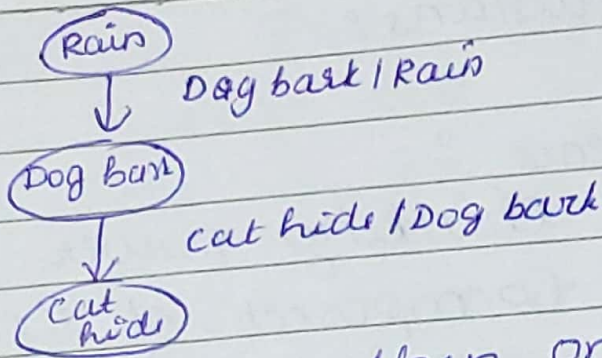 Rain
Dog bark / Rain
Dog bark
cat hide / Dog bark
cat
hide